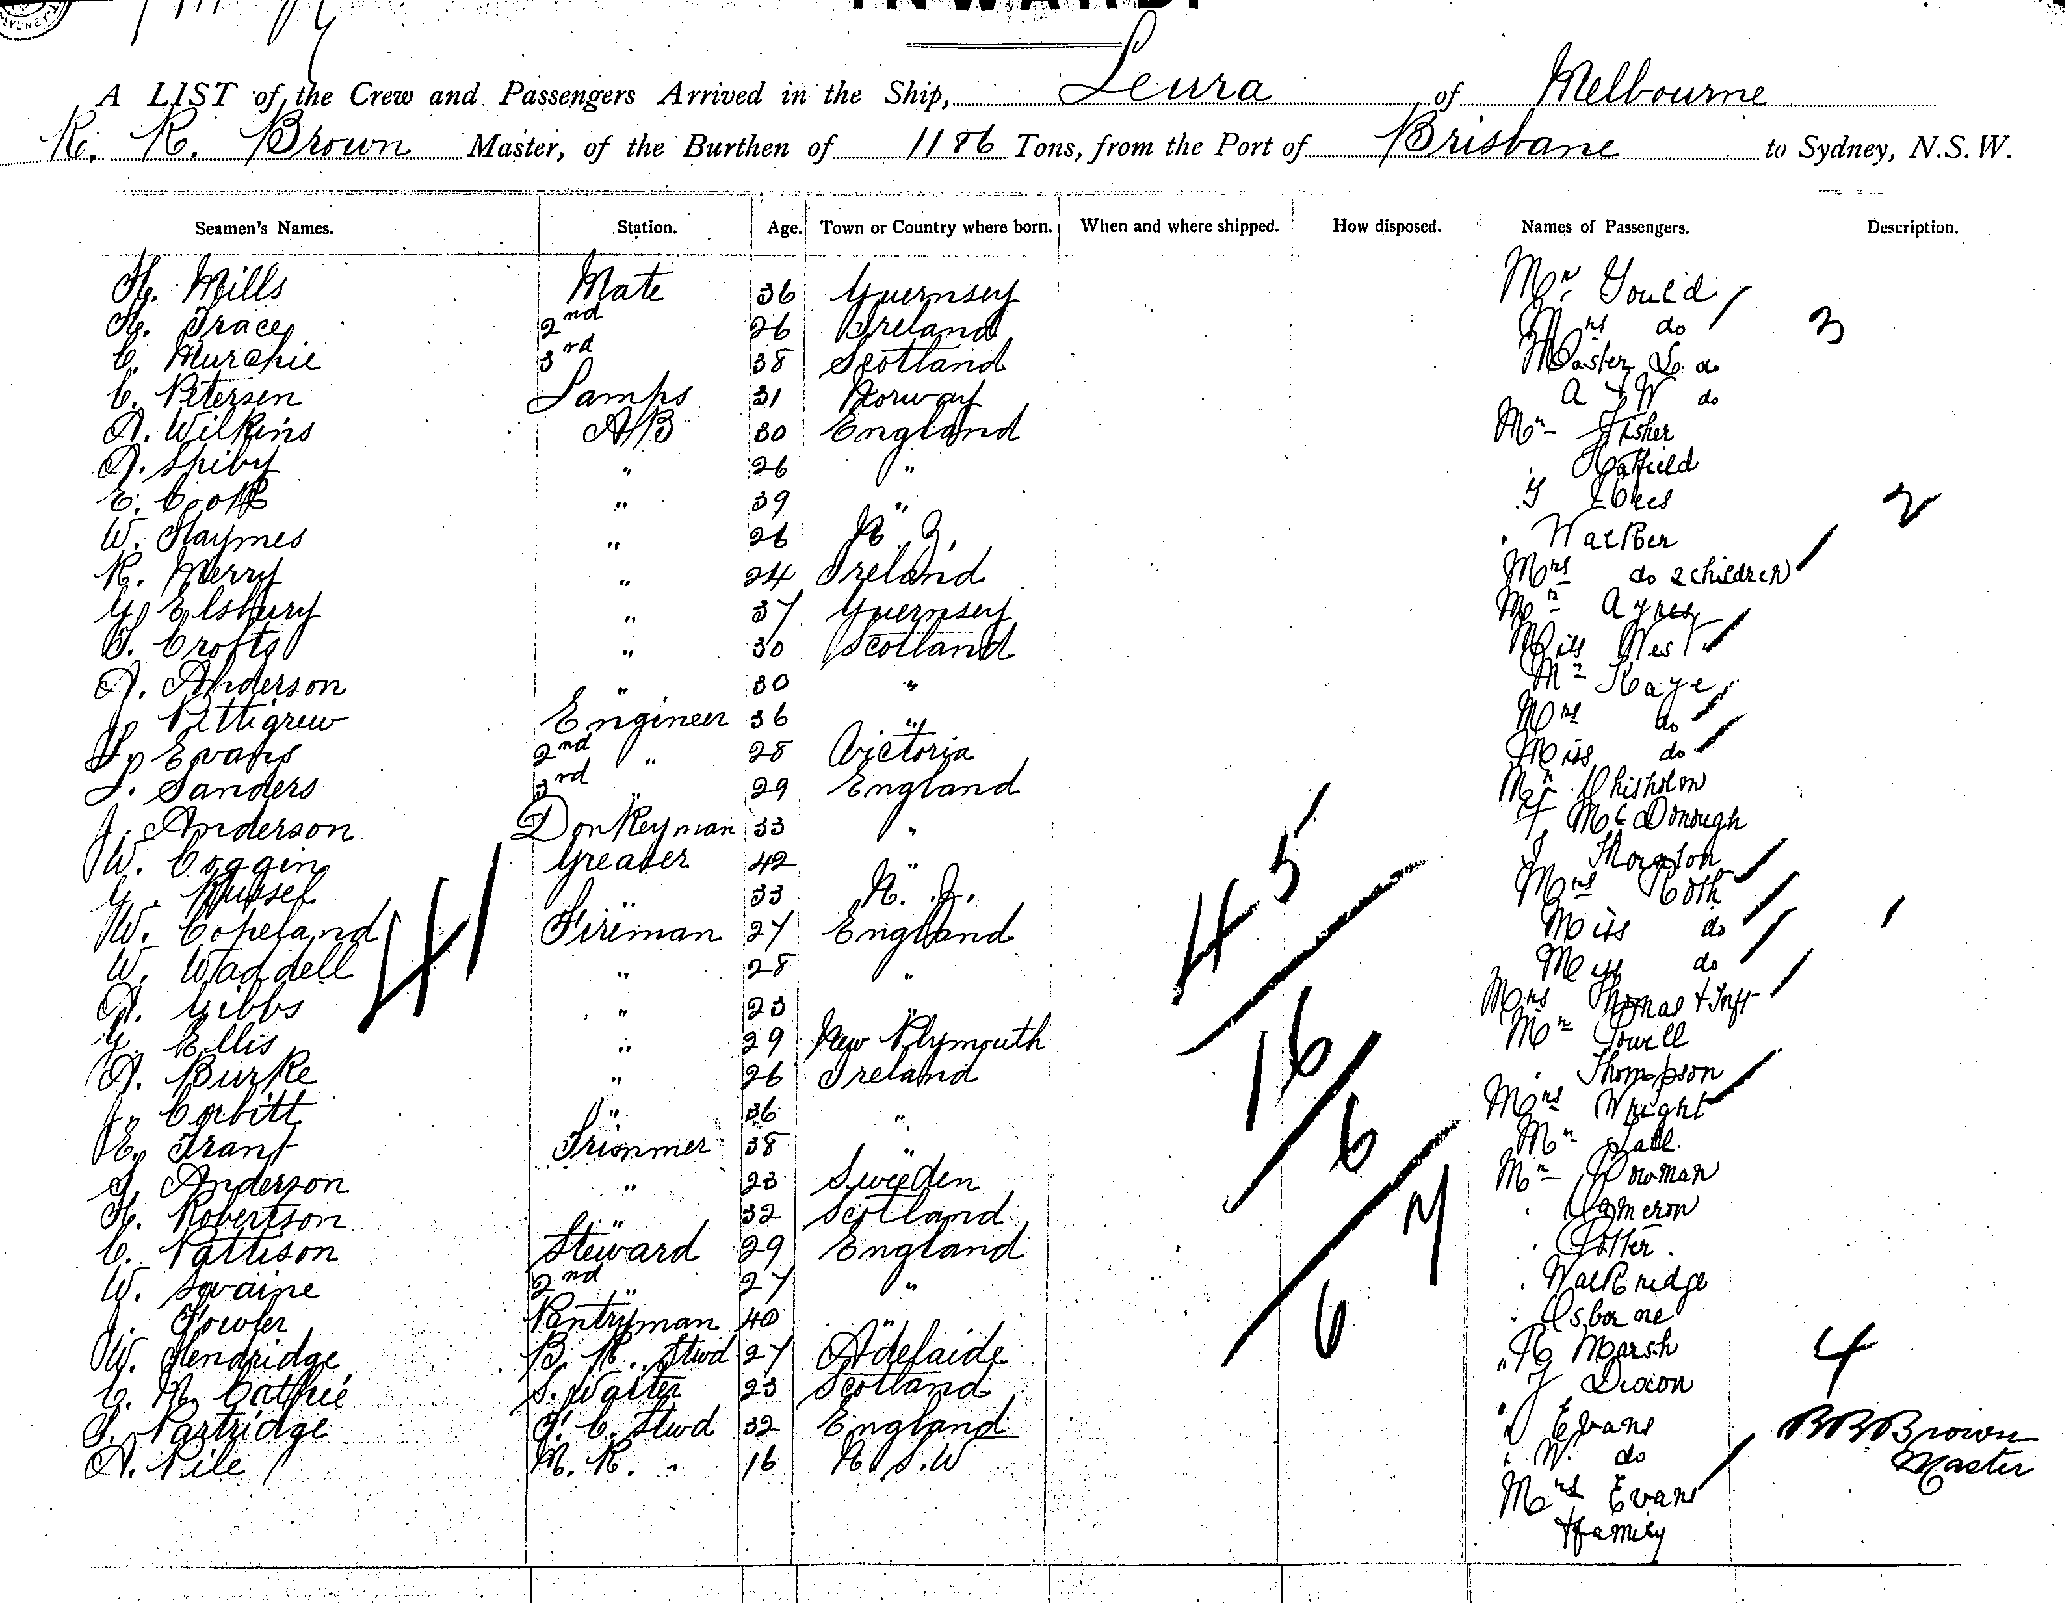 INWARD.
A LIST of the Crew and Passengers Arrived in the Ship, Leura of Melbourne
R. R. Brown Master, of the Burthen of 1186 Tons, from the Port of Brisbane to Sydney, N.S.W.
Seamen's Names. Station. Age. Town or Country where born. When and where shipped. How disposed. Names of Passengers. Description.
H. Mills Mate 36 Guernsey Mr Gould
H. Tracey 2nd 26 Ireland Mrs do 3
C. Murchie 3rd 38 Scotland Master L. do
C. Petersen Lamps 31 Norway A & W do
A. Wilkins AB 30 England Mr Fisher
A. Spiby " 26 " Hatfield
E. Cook " 39 " 2
W. Haymes " 26 N. Z. Walker
R. Merry " 24 Ireland Mrs do 2 children
G. Elsbury " 37 Guernsey Mr Ayres
T. Crofts " 30 Scotland Miss West
A. Anderson " 30 " Mr Kaye
J. Pettigrew Engineer 36 " Mrs do
Evans 2nd " 28 Victoria Miss do
Sanders 3rd " 29 England Mr Chisholm
J. Anderson Donkeyman 33 " McDonough
W. Coggin Greaser 42 "
G. Russel " 33 N. Z. Mrs Roth
W. Copeland Fireman 27 England Miss do
W. Waddell " 28 " Miss do
A. Gibbs " 23 " Mrs Thomas & Inft
G. Ellis " 29 New Plymouth Mr Powell
A. Burke " 26 Ireland Thompson
J. Corbitt " 36 " Mrs Wright
E. Trant Trimmer 38 " Mr
Anderson " 23 Sweeden Mr Bowman
H. Robertson " 32 Scotland Cameron
C. Pattison Steward 29 England Potter
W. Swaine 2nd " 27 " Walkridge
J. Fowler Pantryman 40 " Osborne
W. Hendridge B. R. Stwd 27 Adelaide Marsh 4
C. McCathie S. Waiter 23 Scotland J Dixon
Partridge F. C. Stwd 32 England Evans RRBrown
A. Pile M. R. " 16 N.S.W W. do Master
Mrs Evans
& family
41
45
16
6
7
6
1